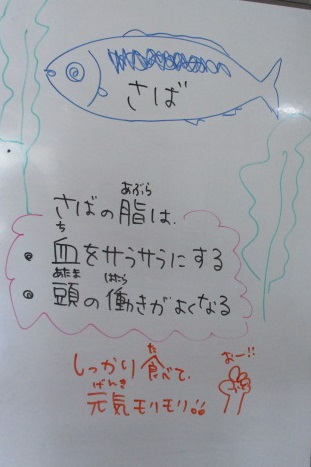 さば
さばの脂は、
あぶら
・血をサラサラにする
ち
・頭の働きがよくなる
あたま はたら
しっかり食べて、
た
元気モリモリ!!
げんき
おー!!